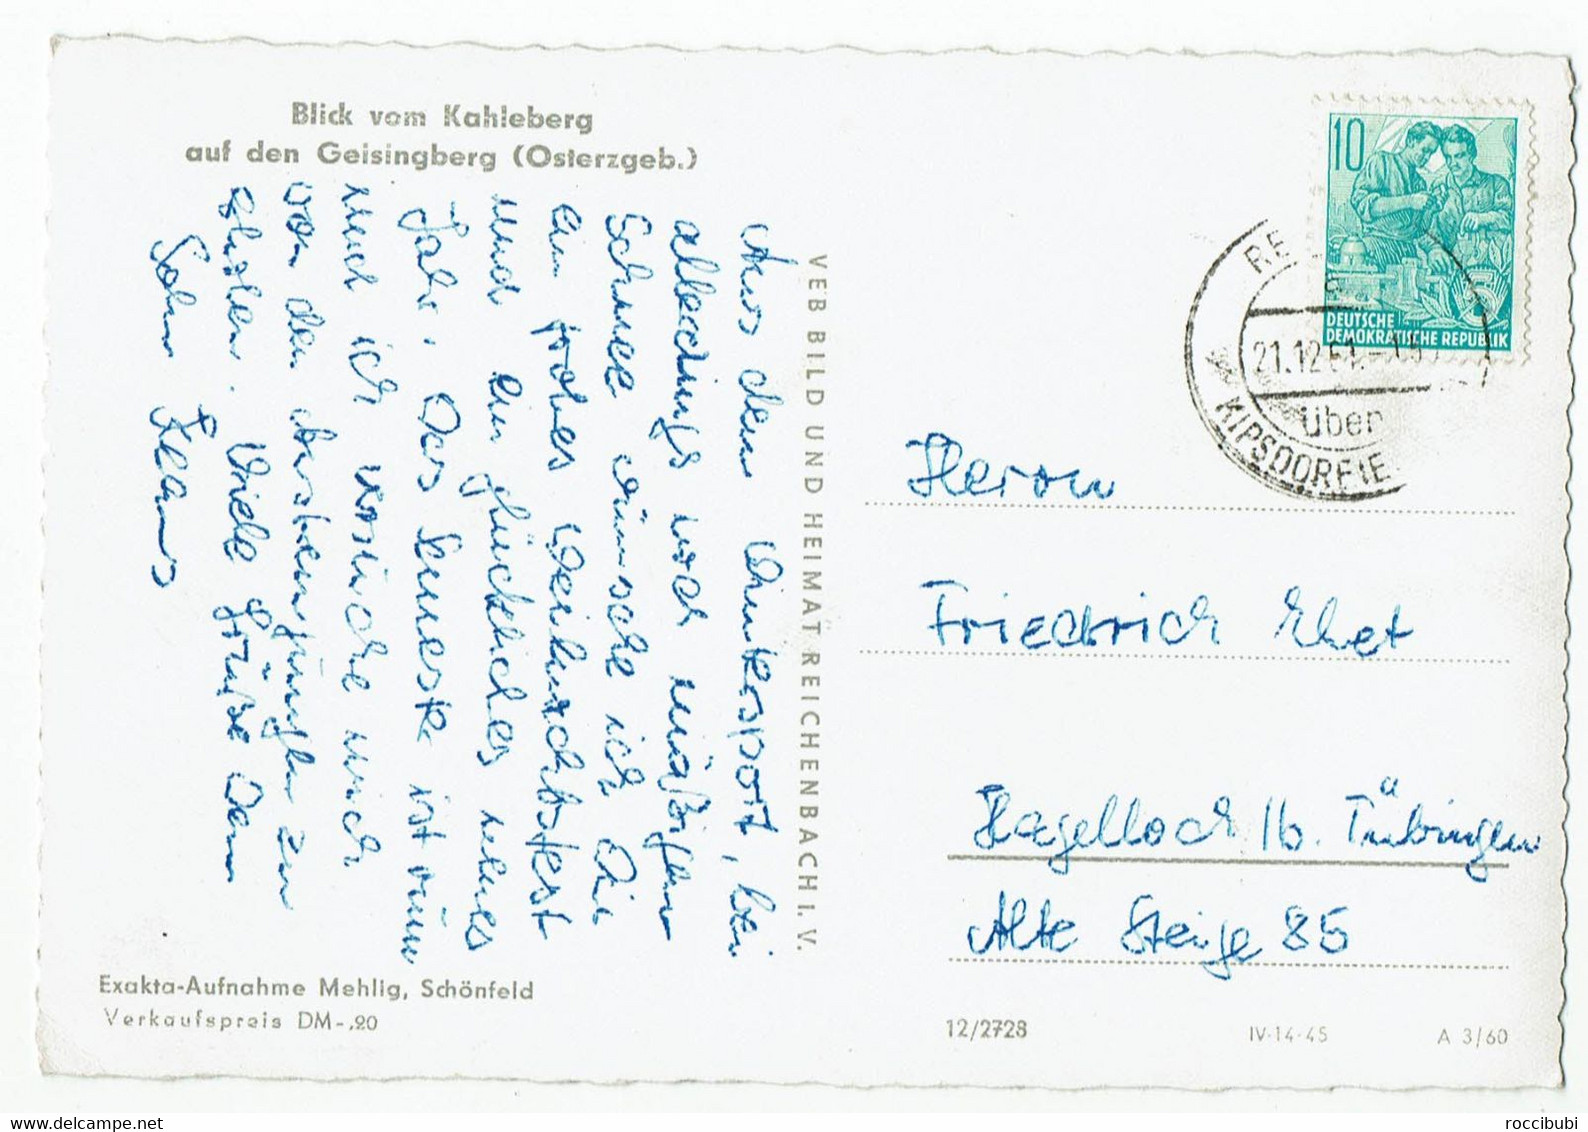 Blick vom Kahleberg
auf den Geisingberg (Osterzgeb.)
Aus dem Wintersport, bei
allerdings noch mäßigem
Schnee wünsche ich Dir
ein frohes Weihnachtsfest
und ein glückliches neues
Jahr. Das Neueste ist nun
und ich wünsche mich
von den
Viele Grüße Dein
Sohn Klaus
VEB BILD UND HEIMAT REICHENBACH I. V.
Exakta-Aufnahme Mehlig, Schönfeld
Verkaufspreis DM -,20
10
DEUTSCHE
DEMOKRATISCHE REPUBLIK
21.12.61.
über
KIPSDORF
Herrn
Friedrich
Hagelloch b. Tübingen
Alte Steige 85
12/2728
IV-14-45
A 3/60
roccibubi